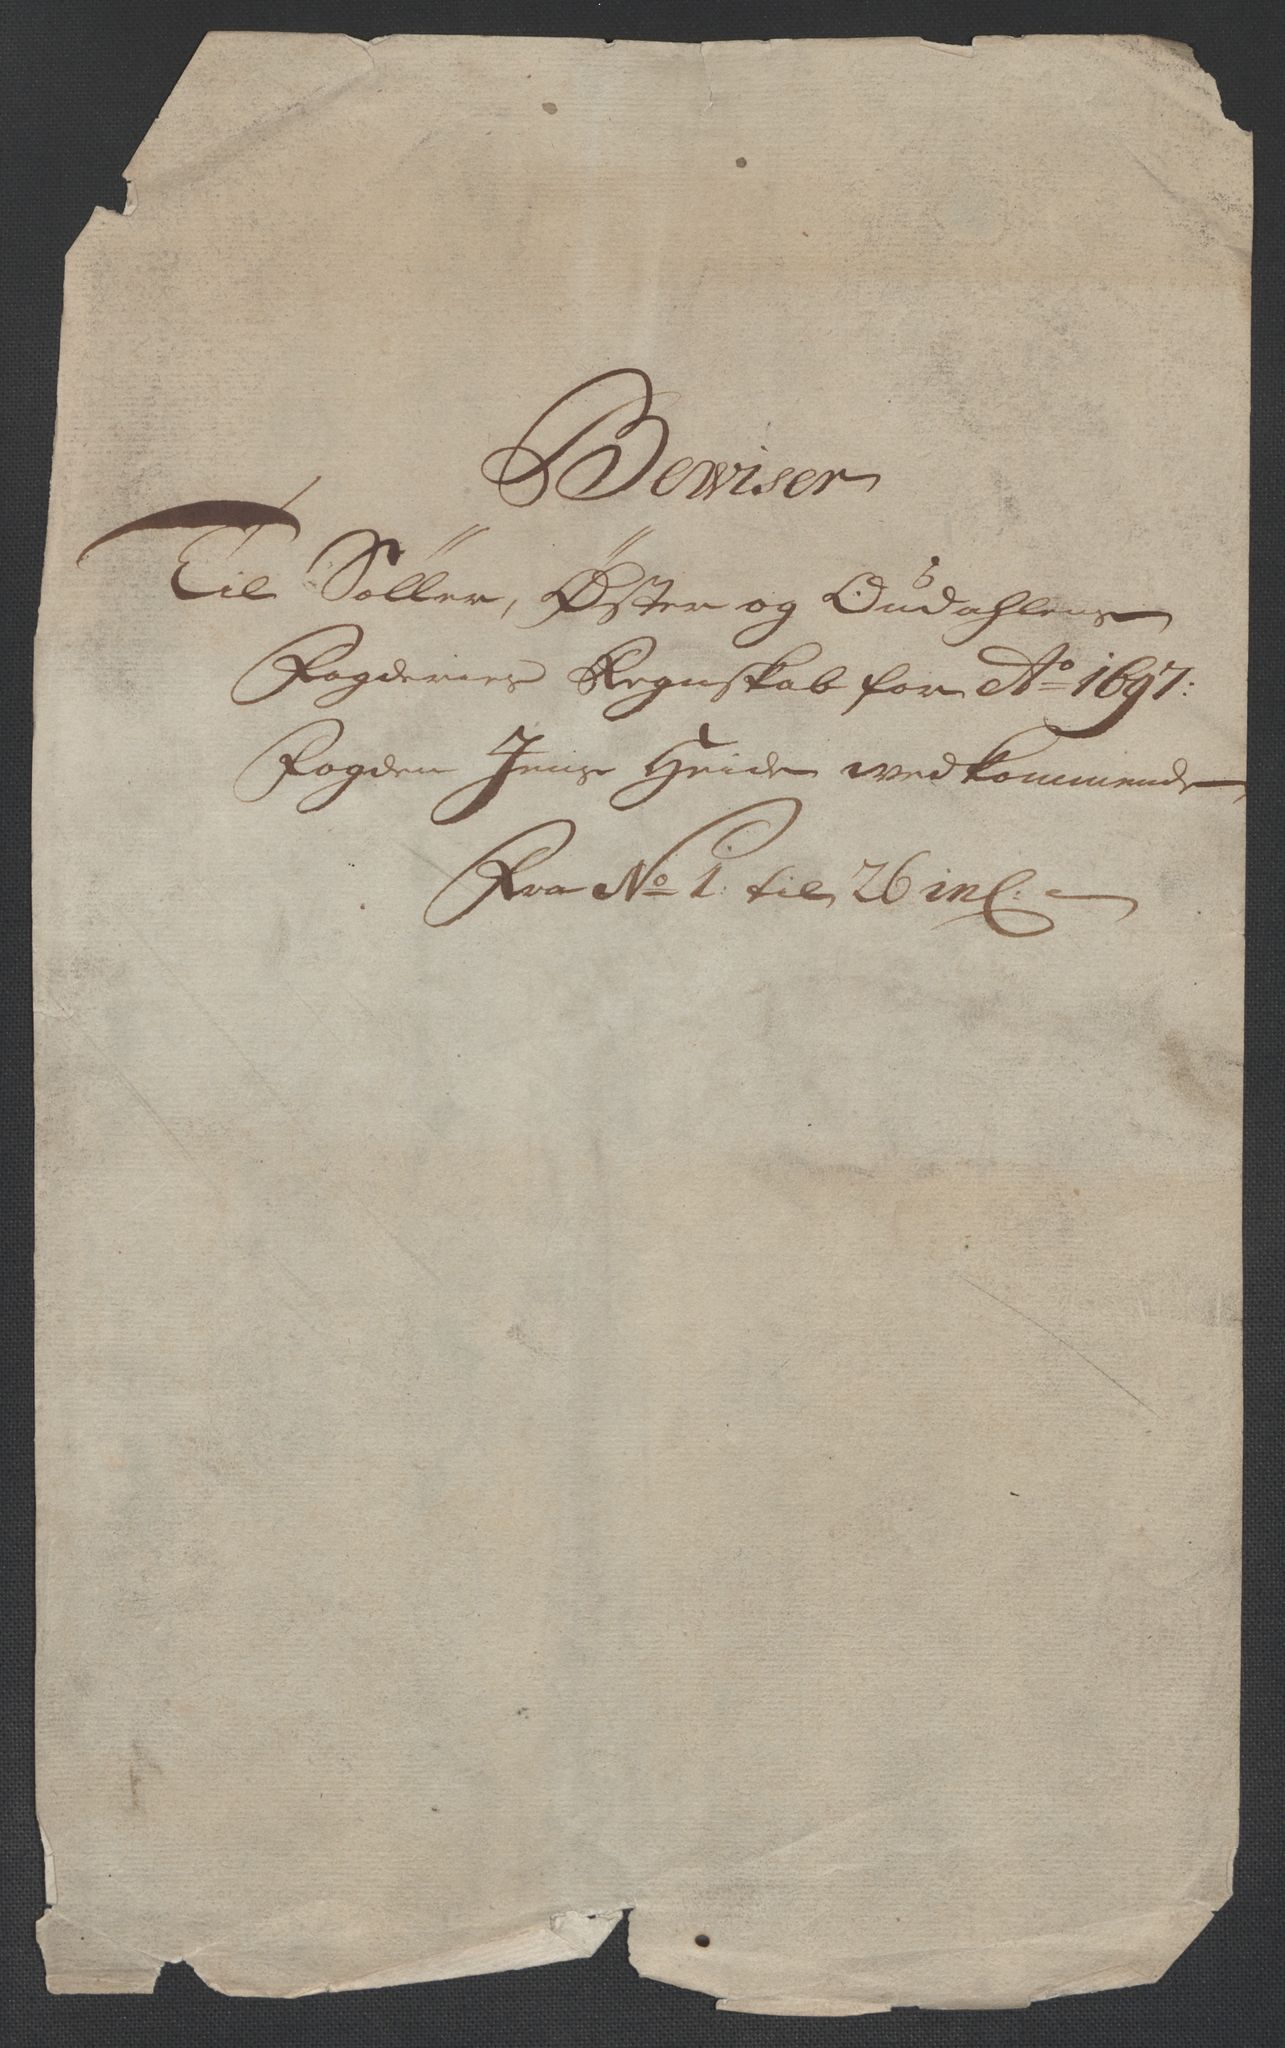 Bewiser
Til Soller, Øster og Oudahlens
Fogderies Regnskab for Ao 1697:
Fogden Jens Heide wedkommende,
Fra No 1: til 26 incl: